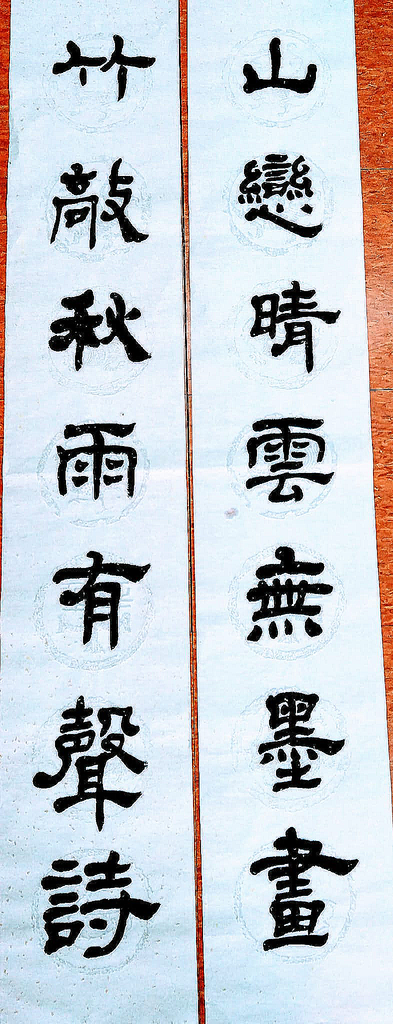 山戀晴雲無墨畫
竹敲秋雨有聲詩